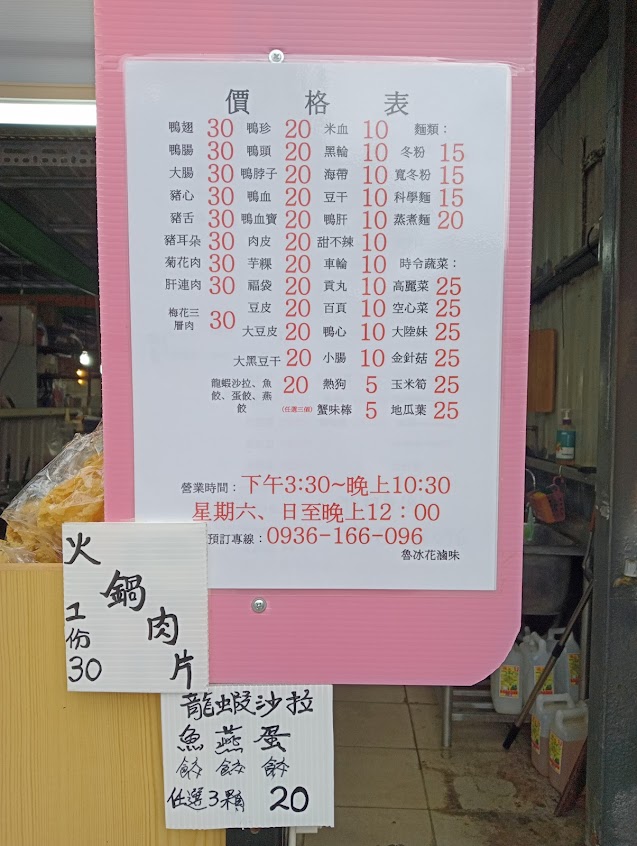 價格表
鴨翅 30 鴨珍 20 米血 10 麵類：
鴨腸 30 鴨頭 20 黑輪 10 冬粉 15
大腸 30 鴨脖子 20 海帶 10 寬冬粉 15
豬心 30 鴨血 20 豆干 10 科學麵 15
豬舌 30 鴨血寶 20 鴨肝 10 蒸煮麵 20
豬耳朵 30 肉皮 20 甜不辣 10
菊花肉 30 芋粿 20 車輪 10 時令蔬菜：
肝連肉 30 福袋 20 貢丸 10 高麗菜 25
梅花三層肉 30 豆皮 20 百頁 10 空心菜 25
大豆皮 20 鴨心 10 大陸妹 25
大黑豆干 20 小腸 10 金針菇 25
龍蝦沙拉、魚餃、蛋餃、燕餃 20 熱狗 5 玉米筍 25
(任選三個) 蟹味棒 5 地瓜葉 25
營業時間：下午3:30~晚上10:30
星期六、日至晚上12：00
預訂專線：0936-166-096
魯冰花滷味
火鍋肉片
工份30
龍蝦沙拉
魚餃 燕餃 蛋餃
任選3顆 20